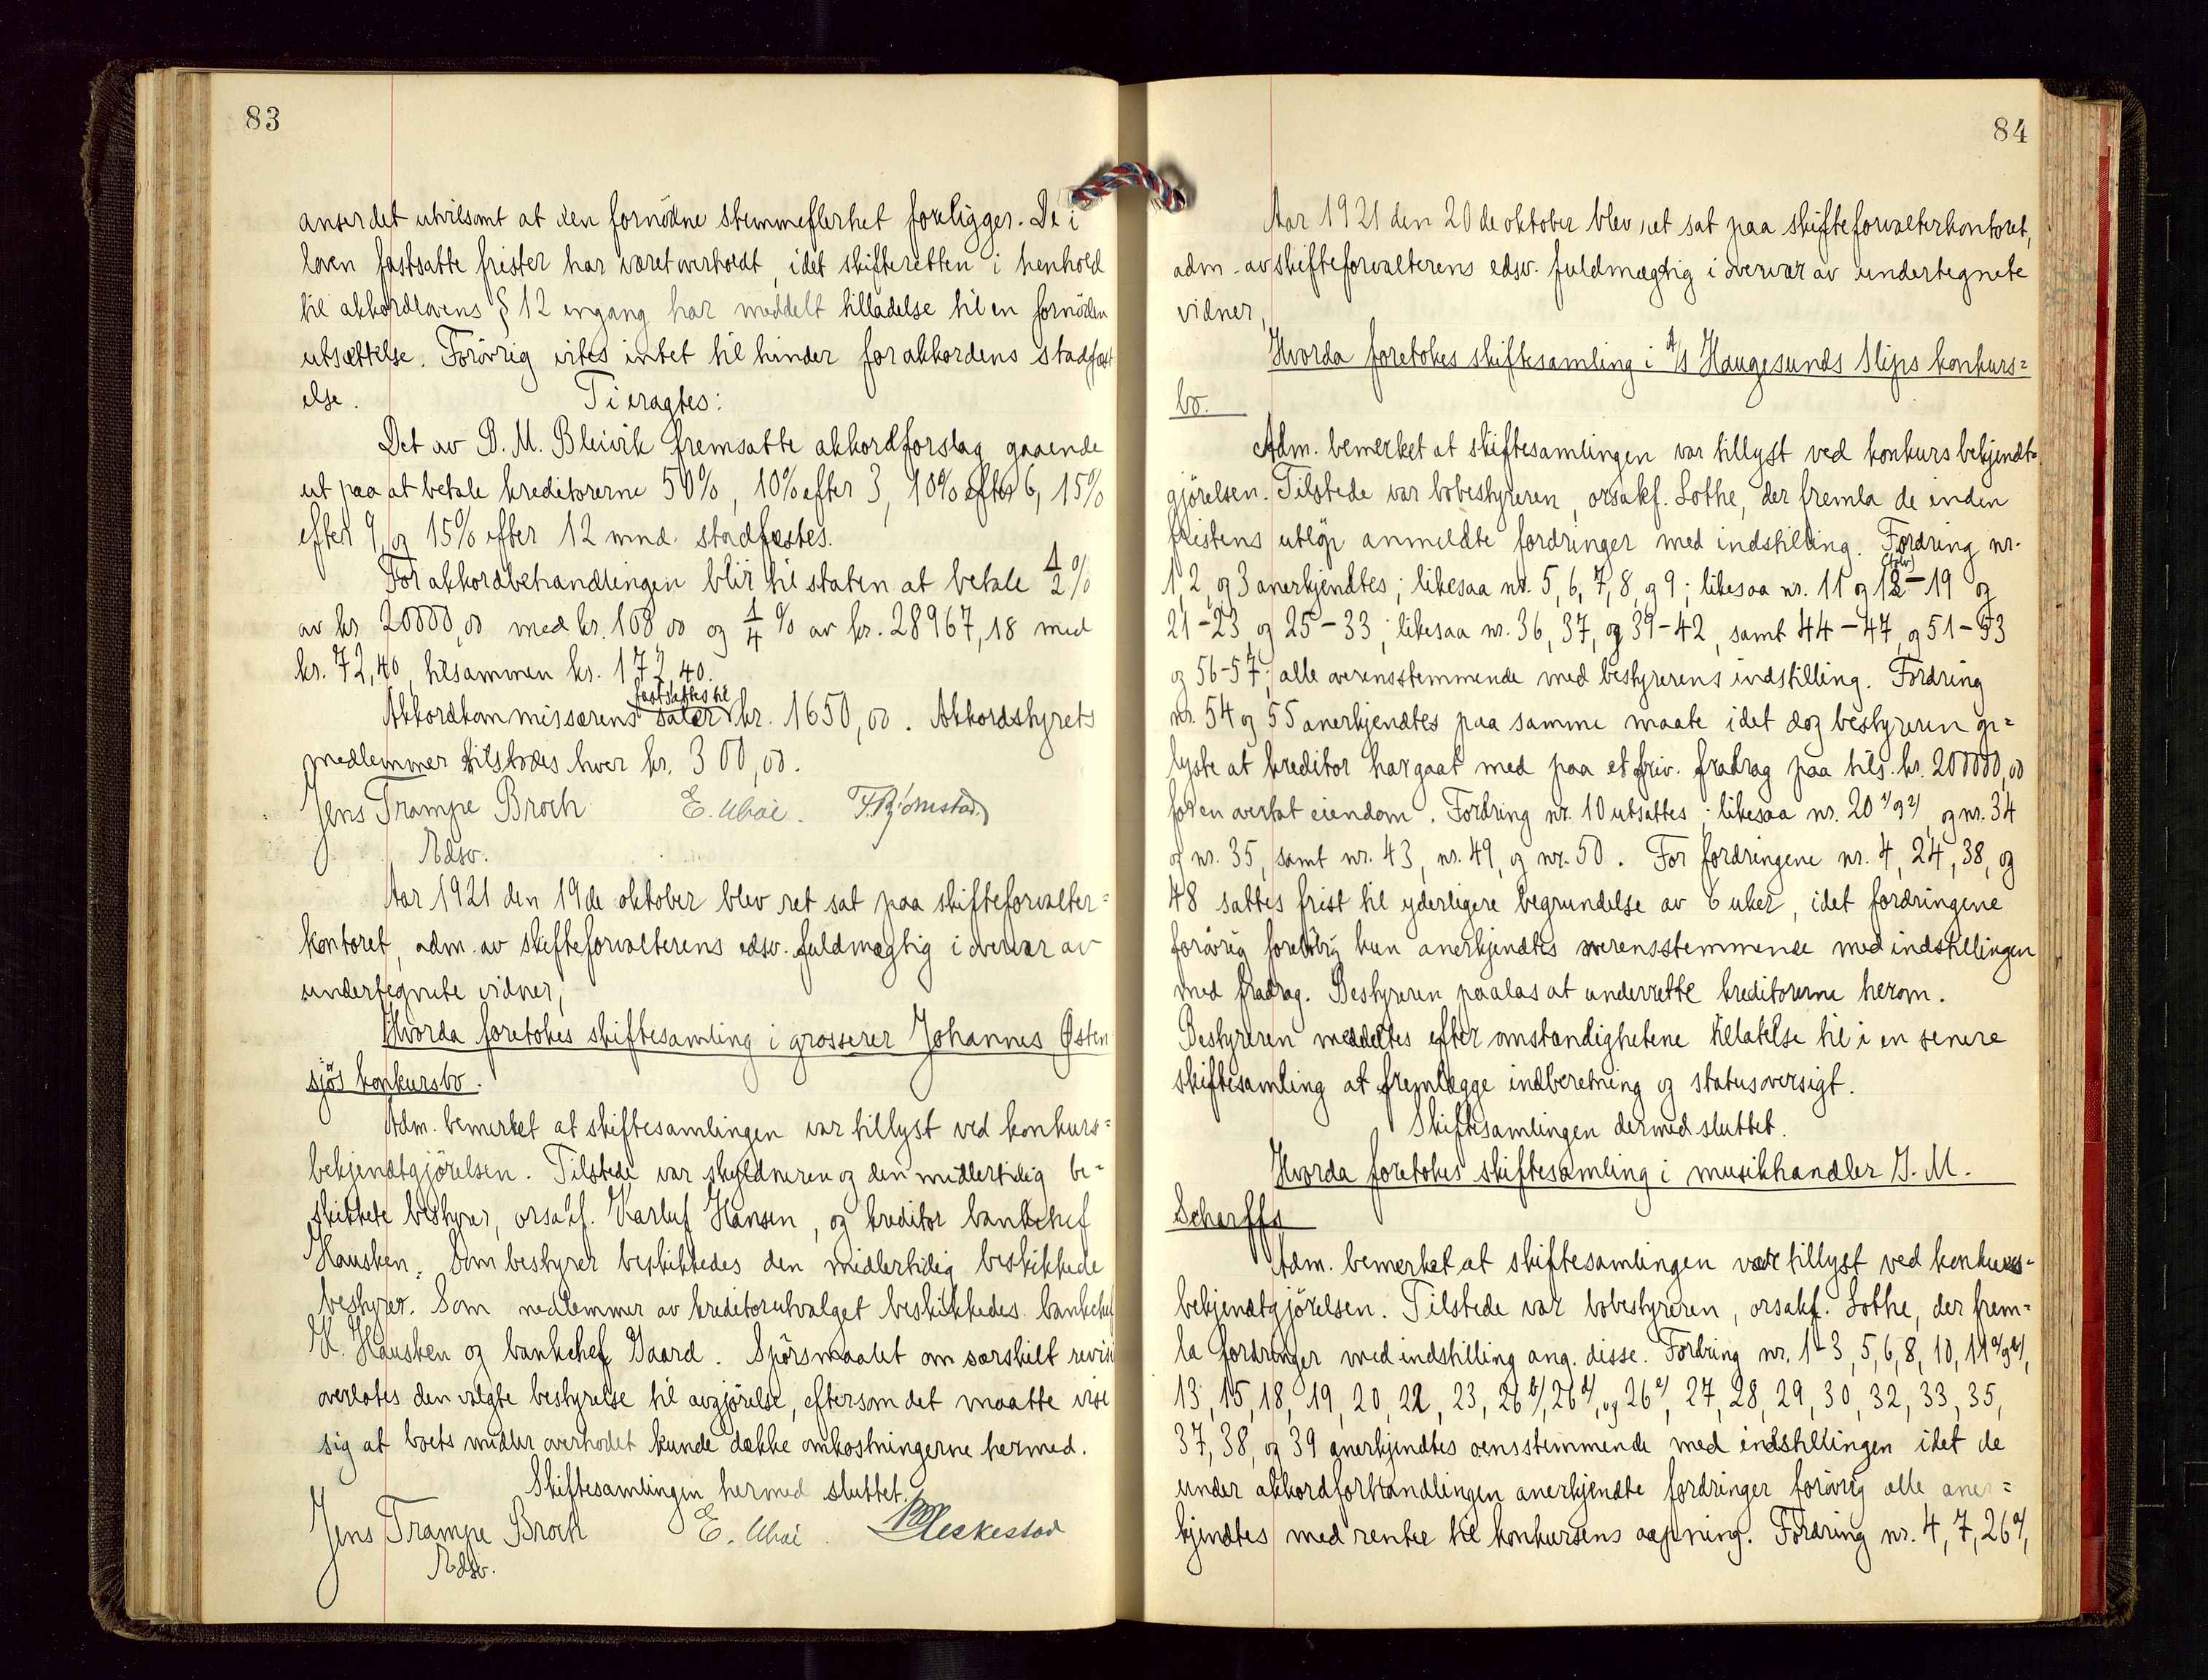 83
anser det utvilsomt at den fornödne stemmeflerhet foreligger. De i
loven fastsatte frister har været overholdt, idet skifteretten i henhold
til akkordlovens § 12 engang har meddelt tilladelse til en fornöden
utsættelse. Forövrig vites intet til hinder for akkordens stadfæst
else. Ti eragtes:
Det av B. M. Bleivik fremsatte akkordforslag gaaende
ut paa at betale kreditorerne 50%, 10% efter 3, 10% efter 6, 15%
efter 9 og 15% efter 12 mnd. stadfæstes.
For akkordbehandlingen blir til staten at betale 1/2 %
av kr 20000,00 med kr. 100 00 og 1/4 % av kr. 28967,18 med
kr. 72,40, tilsammen kr. 172,40.
fastsættes til
Akkordkommissærens salær kr. 1650,00. Akkordstyrets
medlemmer tilstodes hver kr. 300,00.
Jens Trampe Broch E. Ubøe. T. Bjørnstad
Edsv.
Aar 1921 den 19de oktober blev ret sat paa skifteforvalter=
kontoret, adm. av skifteforvalterens edsv. fuldmægtig i overvær av
undertegnete vidner,
Hvorda foretokes skiftesamling i grosserer Johannes Østen
sjös konkursbo.
Adm. bemerket at skiftesamlingen var tillyst ved konkurs=
bekjendtgjörelsen. Tilstede var skyldneren og den midlertidig be=
skikkete bestyrer, orsakf. Karluf Hansen, og kreditor bankchef
Hausken. Som bestyrer beskikkedes den midlertidig beskikkede
bestyrer. Som medlemmer av kreditorutvalget beskikkedes bankchef
K. Hausken og bankchef Gaard. Spörsmaalet om særskilt revisi
overlates den valgte bestyrelse til avgjörelse, eftersom det maatte vise
sig at boets midler overhodet kunde dække omkostningerne hermed.
Skiftesamlingen hermed sluttet.
Jens Trampe Broch E. Ubøe Meskestad
Edsv.
84
Aar 1921 den 20de oktober blev ret sat paa skifteforvalterkontoret,
adm. av skifteforvalterens edsv. fuldmægtig i overvær av undertegnete
vidner,
Hvorda foretokes skiftesamling i A/S Haugesunds Slips konkurs=
bo.
Adm. bemerket at skiftesamlingen var tillyst ved konkurs bekjendt=
gjörelsen. Tilstede var bobestyreren, orsakf. Lothe, der fremla de inden
fristens utlöp anmeldte fordringer med indstilling. Fordring nr.
(tolv)
1, 2, og 3 anerkjendtes; likesaa nr. 5, 6, 7, 8, og 9; likesaa nr. 11 og 12-19 og
21-23 og 25-33; likesaa nr. 36, 37, og 39-42, samt 44-47, og 51-53
og 56-57; alle overensstemmende med bestyrerens indstilling. Fordring
nr. 54 og 55 anerkjendtes paa samme maate idet dog bestyreren op=
lyste at kreditor har gaat med paa et friv. fradrag paa tils. kr. 200000,00
for en overtat eiendom. Fordring nr. 10 utsattes; likesaa nr. 20 1/ og 2/, og nr. 34
og nr. 35, samt nr. 43, nr. 49, og nr. 50. For fordringene nr. 4, 24, 38, og
48 sattes frist til yderligere begrundelse av 6 uker, idet fordringene
forövrig kun anerkjendtes overensstemmende med indstillingen
med fradrag. Bestyreren paalas at underrette kreditorerne herom.
Bestyreren meddeltes efter omstændighetene tillatelse til i en senere
skiftesamling at fremlægge indberetning og statusoversigt.
Skiftesamlingen dermed sluttet.
Hvorda foretokes skiftesamling i musikhandler J. M.
Scharffs
Adm. bemerket at skiftesamlingen var tillyst ved konkurs=
bekjendtgjörelsen. Tilstede var bobestyreren, orsakf. Lothe, der frem=
la fordringer med indstilling ang. disse. Fordring nr. 1-3, 5, 6, 8, 10, 11 a/ og b/,
13, 15, 18, 19, 20, 22, 23, 26 b/, 26 d/, og 26 e/, 27, 28, 29, 30, 32, 33, 35,
37, 38, og 39 anerkjendtes oensstemmende med indstillingen idet de
under akkordforhandlingen anerkjendte fordringer forövrig alle aner=
kjendtes med renter til konkursens aapning. Fordring nr. 4, 7, 26 a/,